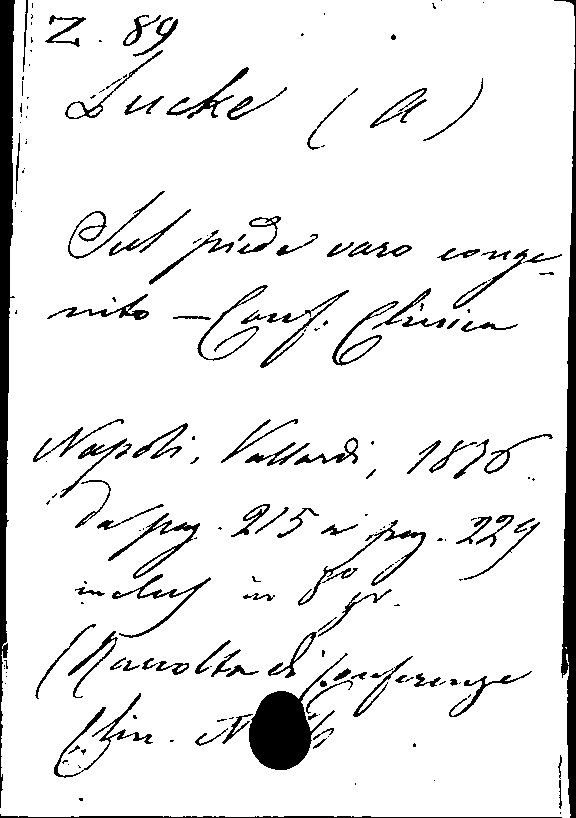 Z. 89
Lucke (A)
Sul piede varo conge-
nito - Conf. Clinica
Napoli, Vallardi, 1876
da pag. 215 a pag. 229
inclus in 8º gr.
(Raccolta di Conferenze
Clin. N